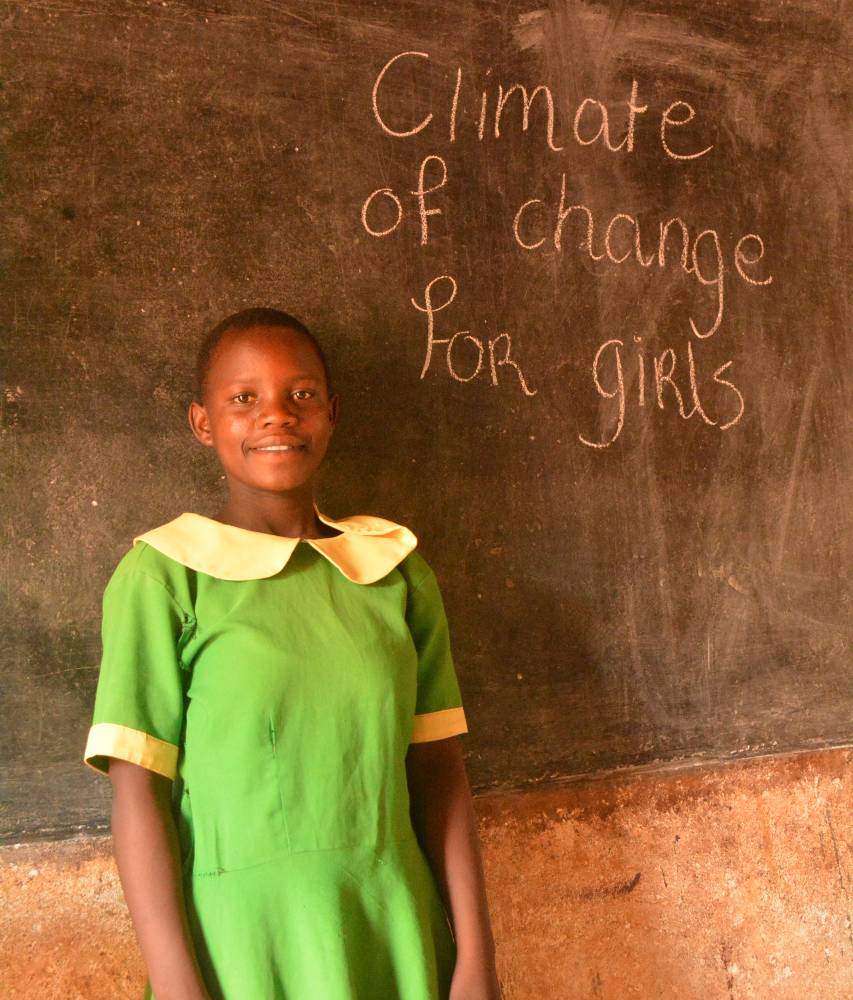 Climate
of change
for girls